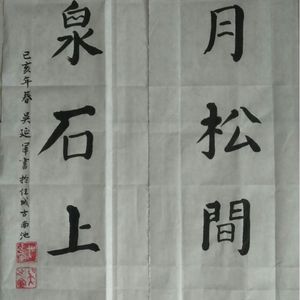 月松間
泉石上
己亥年春吴延軍書於任城古南池